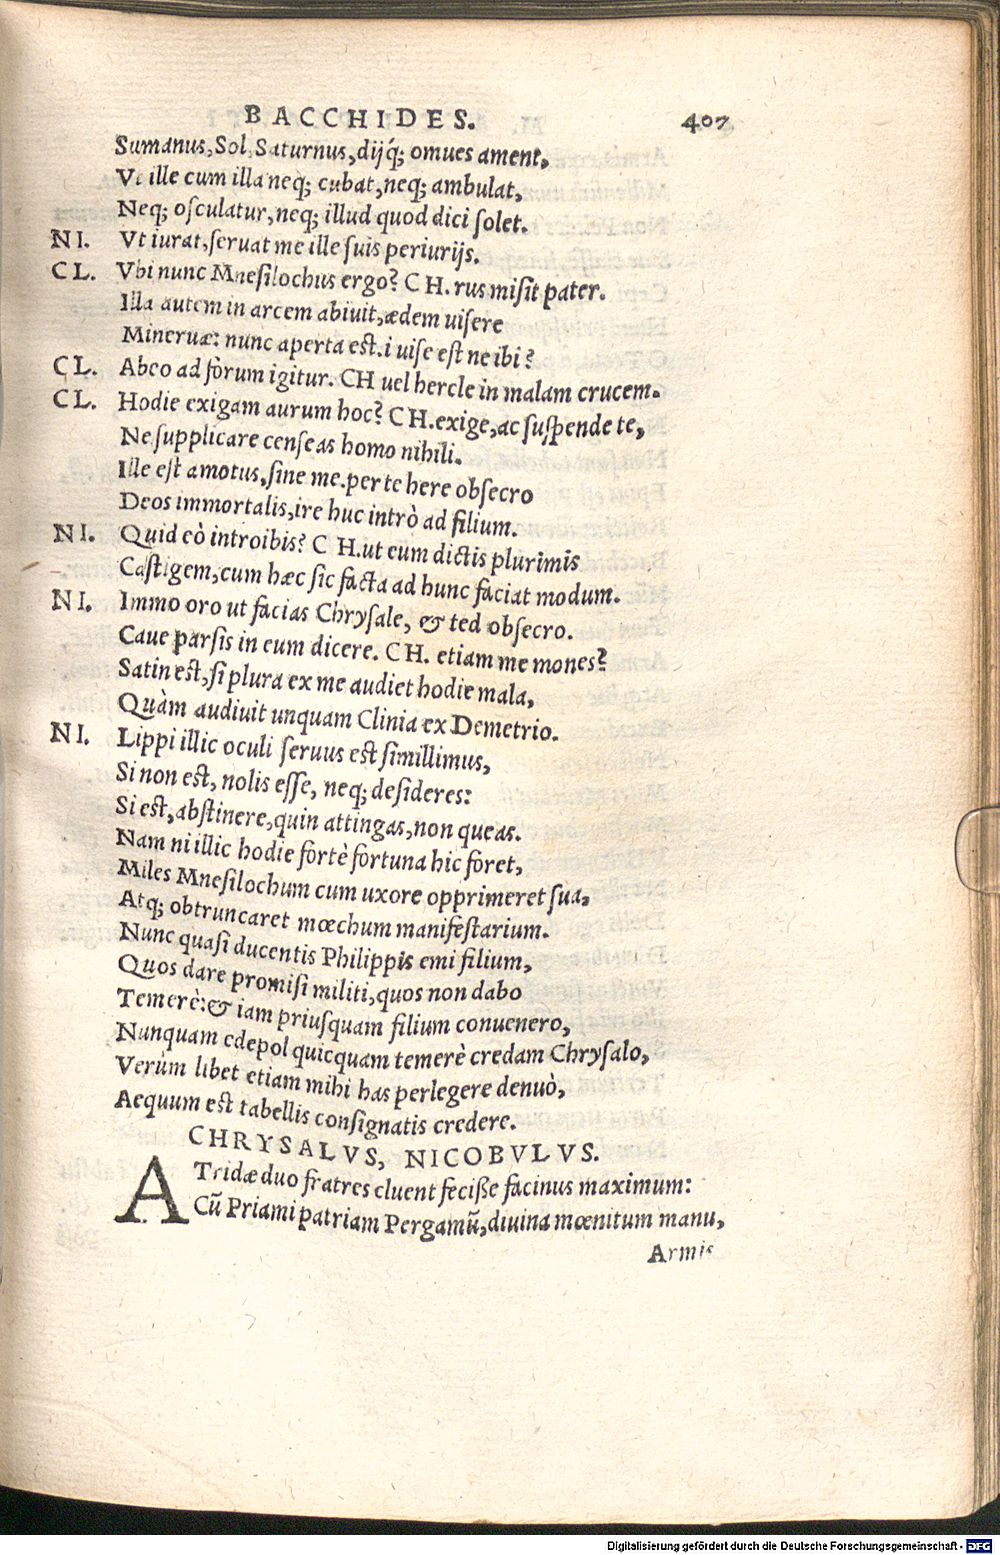 BACCHIDES. 407
Sumanus, Sol, Saturnus, dijq́; omues ament,
Vt ille cum illa neq; cubat, neq; ambulat,
Neq; oſculatur, neq; illud quod dici ſolet.
NI. Vt iurat, ſeruat me ille ſuis periurijs.
CL. Vbi nunc Mneſilochus ergo? CH. rus miſit pater.
Illa autem in arcem abiuit, ædem uiſere
Mineruæ: nunc aperta eſt. i uiſe eſt ne ibi?
CL. Abeo ad forum igitur. CH uel hercle in malam crucem.
CL. Hodie exigam aurum hoc? CH. exige, ac ſuſpende te,
Ne ſupplicare cenſeas homo nihili.
Ille eſt amotus, ſine me. per te here obſecro
Deos immortalis, ire huc intrò ad filium.
NI. Quid eò introibis? CH. ut eum dictis plurimis
Caſtigem, cum hæc ſic facta ad hunc faciat modum.
NI. Immo oro ut facias Chryſale, & ted obſecro.
Caue parſis in eum dicere. CH. etiam me mones?
Satin eſt, ſi plura ex me audiet hodie mala,
Quàm audiuit unquam Clinia ex Demetrio.
NI. Lippi illic oculi ſeruus eſt ſimillimus,
Si non eſt, nolis eſſe, neq; deſideres:
Si eſt, abſtinere, quin attingas, non queas.
Nam ni illic hodie fortè fortuna hic foret,
Miles Mneſilochum cum uxore opprimeret ſua,
Atq; obtruncaret mœchum manifeſtarium.
Nunc quaſi ducentis Philippis emi filium,
Quos dare promiſi militi, quos non dabo
Temerè: & iam priuſquam filium conuenero,
Nunquam edepol quicquam temerè credam Chryſalo,
Verùm libet etiam mihi has perlegere denuò,
Aequum eſt tabellis conſignatis credere.
CHRYSALVS, NICOBVLVS.
ATridæ duo fratres cluent feciſſe facinus maximum:
Cū Priami patriam Pergamū, diuina mœnitum manu,
Armis
Digitalisierung gefördert durch die Deutsche Forschungsgemeinschaft - DFG